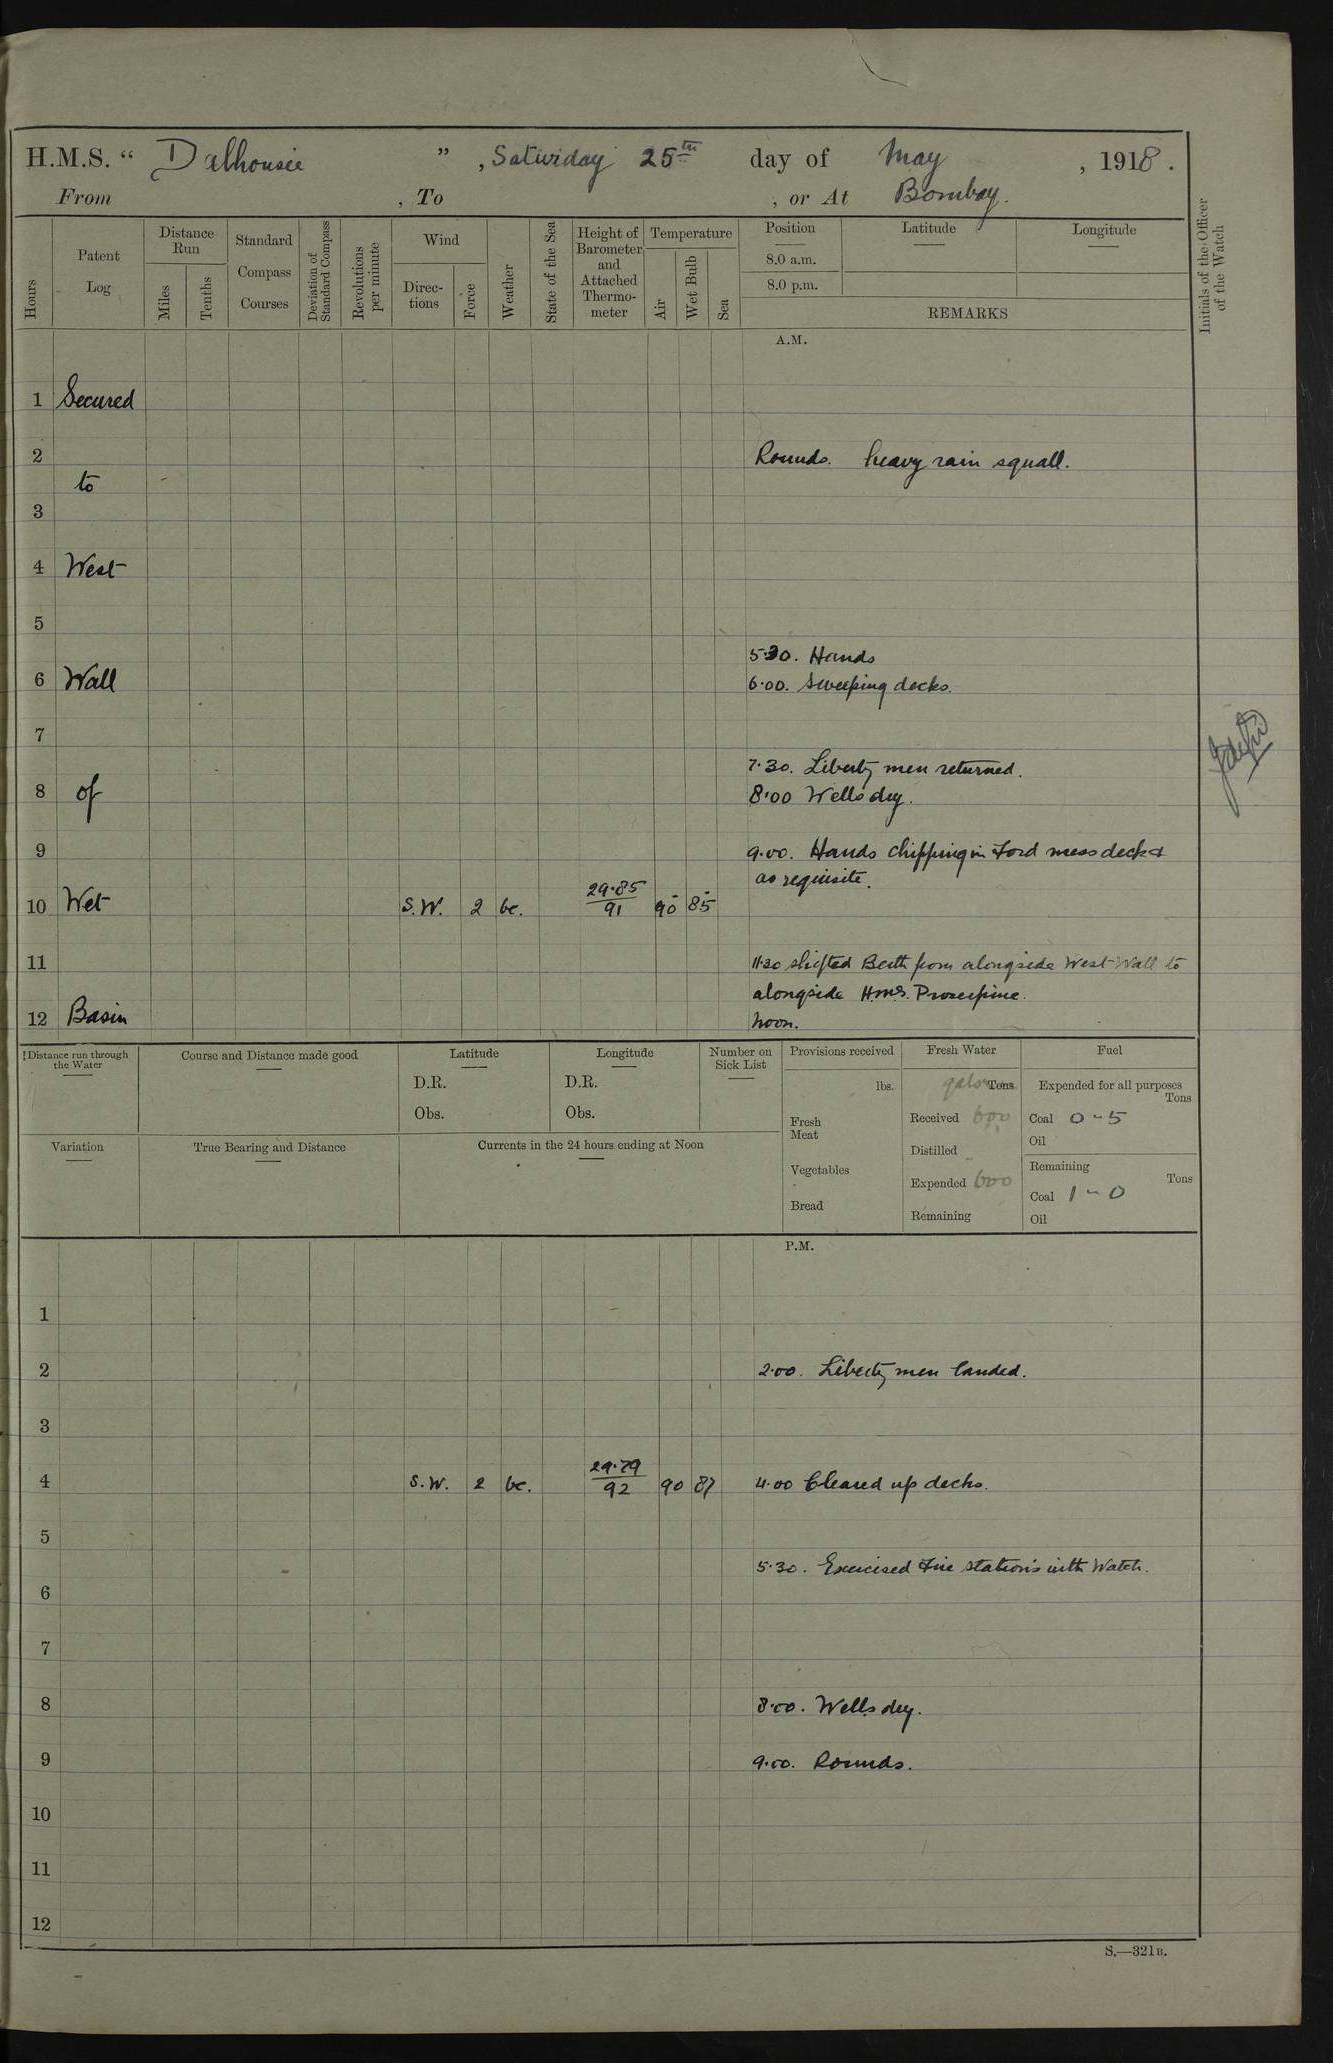 H.M.S. “ Dalhousie ” , Saturday 25th day of May , 1918 .
From , To , or At Bombay.
Hours
Patent Log
Distance Run
Miles
Tenths
Standard Compass Courses
Deviation of Standard Compass
Revolutions per minute
Wind
Direc-tions
Force
Weather
State of the Sea
Height of Barometer and Attached Thermo-meter
Temperature
Air
Wet Bulb
Sea
Position
8.0 a.m.
8.0 p.m.
Latitude
Longitude
REMARKS
Initials of the Officer of the Watch
A.M.
1 Secured
2 Rounds. heavy rain squall.
to
3
4 West
5
5·30. Hands
6 Wall 6·00. Sweeping decks.
7
7·30. Liberty men returned.
8 of 8·00 Wells dry.
9 9·00. Hands chipping in Ford mess deck &
as requisite.
10 Wet S.W. 2 bc. 29·85/91 90 85
11 11·30 shifted Berth from alongside West Wall to
alongside H.M.S. Proserpine.
12 Basin Noon.
Distance run through the Water
Course and Distance made good
Latitude
D.R.
Obs.
Longitude
D.R.
Obs.
Number on Sick List
Provisions received
lbs.
Fresh Meat
Vegetables
Bread
Fresh Water
Tons
Received 600
Distilled
Expended 600
Remaining
Fuel
Expended for all purposes
Tons
Coal 0-5
Oil
Remaining
Tons
Coal 1-0
Oil
Variation
True Bearing and Distance
Currents in the 24 hours ending at Noon
P.M.
1
2 2·00. Liberty men landed.
3
4 S.W. 2 bc. 29·79/92 90 87 4·00 Cleared up decks.
5
5·30. Exercised Fire stations with Watch.
6
7
8 8·00. Wells dry.
9 9·00. Rounds.
10
11
12
S.—321B.